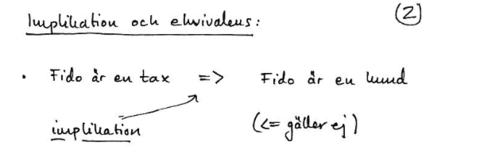 Implikation och ekvivalens: (2)
• Fido är en tax => Fido är en hund
implikation (<= gäller ej)